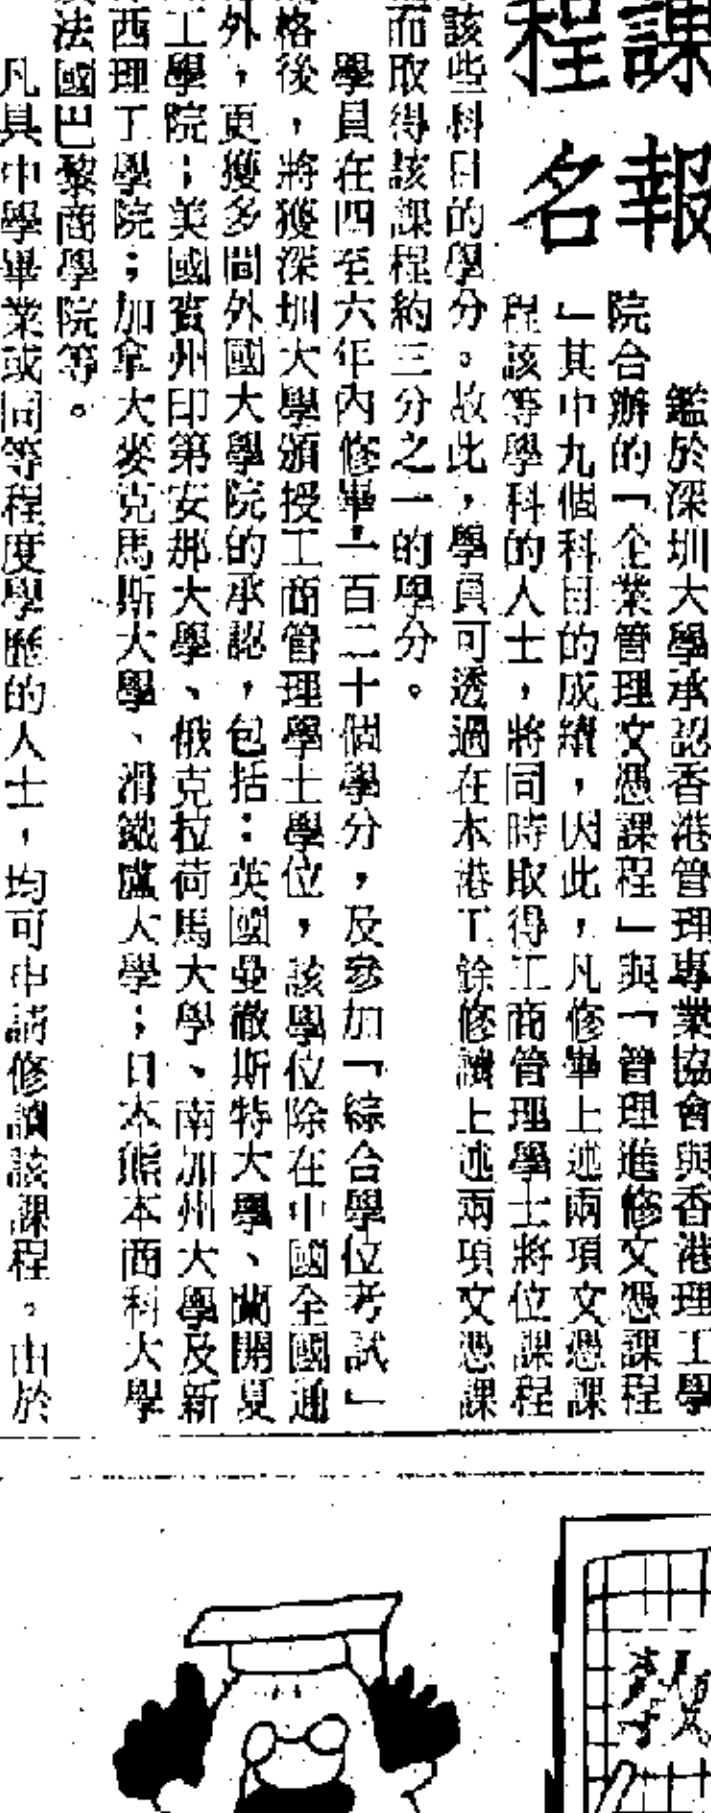 課報
程名
鑑於深圳大學承認香港管理專業協會與香港理工學
院合辦的「企業管理文憑課程」與「管理進修文憑課程
」其中九個科目的成績,因此,凡修畢上述兩項文憑課
程該等學科的人士,將同時取得工商管理學士將位課程
該些科目的學分。故此,學員可透過在本港工餘修讀上述兩項文憑課
而取得該課程約三分之一的學分。
學員在四至六年內修畢一百二十個學分,及參加「綜合學位考試」
格後,將獲深圳大學頒授工商管理學士學位,該學位除在中國全國通
外,更獲多間外國大學院的承認,包括:英國曼徹斯特大學、蘭開夏
工學院;美國賓州印第安那大學、俄克拉荷馬大學、南加州大學及新
西理工學院;加拿大麥克馬斯大學、滑鐵盧大學;日本熊本商科大學
法國巴黎商學院等。
凡具中學畢業或同等程度學歷的人士,均可申請修讀該課程。由於
教